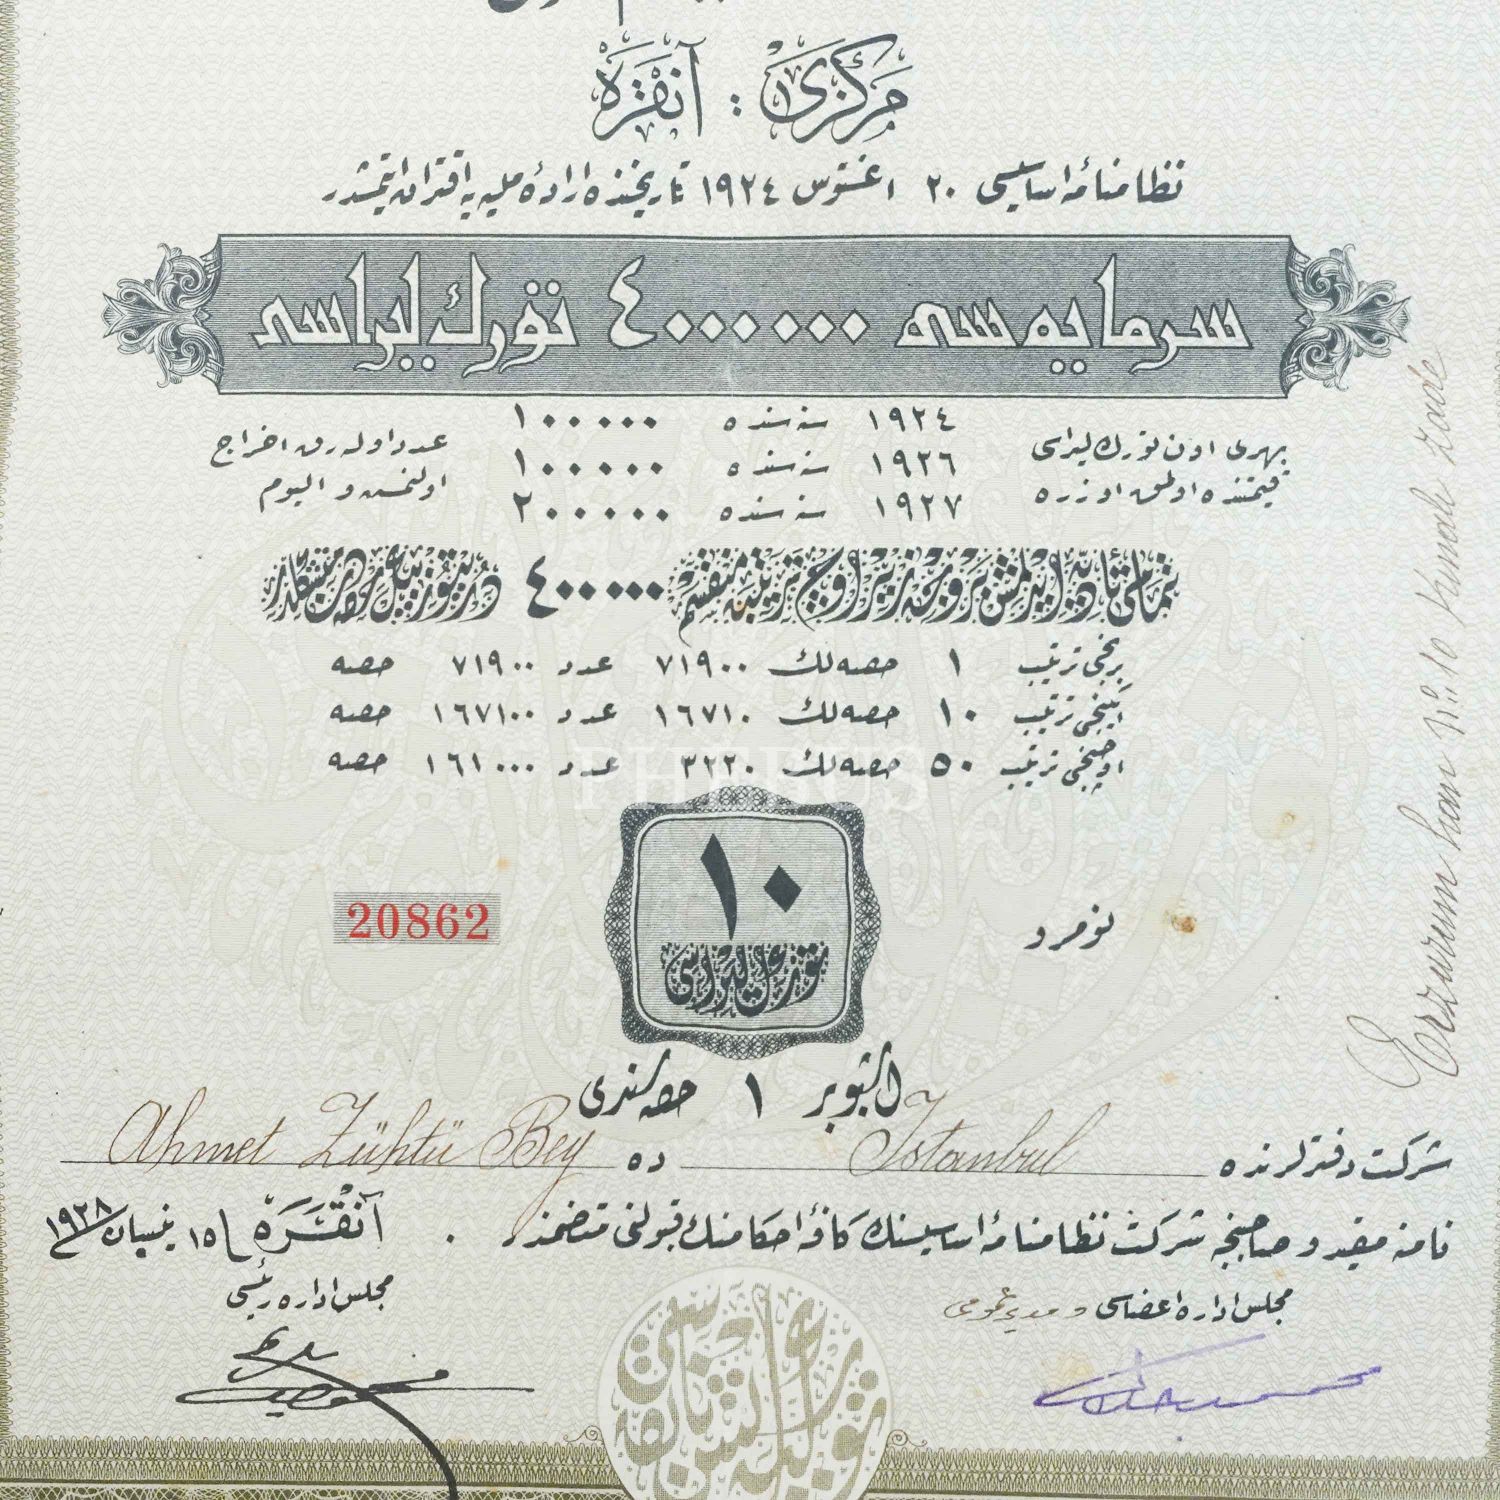 مركزى : آنقره
نظامنامه اساسیسی ٢٠ اغستوس ١٩٢٤ تاریخنده اراده ملیه یه اقتران ایتمشدر
سرمایه سی ٤٠٠٠٠٠٠ تورك لیراسی
بهری اون تورك لیراسی قیمتنده اولمق اوزره
١٩٢٤ سنه سنده ١٠٠٠٠٠
١٩٢٦ سنه سنده ١٠٠٠٠٠
١٩٢٧ سنه سنده ٢٠٠٠٠٠
عدد اوله رق اخراج اولنمش و الیوم
تماماً تأدیه ایدلمش بروجه زیر اوچ ترتیبه منقسم ٤٠٠٠٠٠ درتیوزبیك حصه دن متشكلدر
برنجی ترتیب ١ حصه لك ٧١٩٠٠ عدد ٧١٩٠٠ حصه
ایكنجی ترتیب ١٠ حصه لك ١٦٧١٠ عدد ١٦٧١٠٠ حصه
اوچنجی ترتیب ٥٠ حصه لك ٣٢٢٠ عدد ١٦١٠٠٠ حصه
PHEBUS
١٠
تورك لیراسی
نومرو 20862
اشبو بر ١ حصه سندى
شركت دفترلرنده Istanbul ده Ahmet Zühtü Bey
نامنه مقید و صاحبنجه شركت نظامنامه اساسیسنك كافهٔ احكامنك قبولنی متضمندر .
آنقره ١٥ نیسان ١٩٢٨
مجلس اداره اعضاسی و مدیر عمومی
مجلس اداره رئیسی
Erzurum han No. 10 Kemah zade